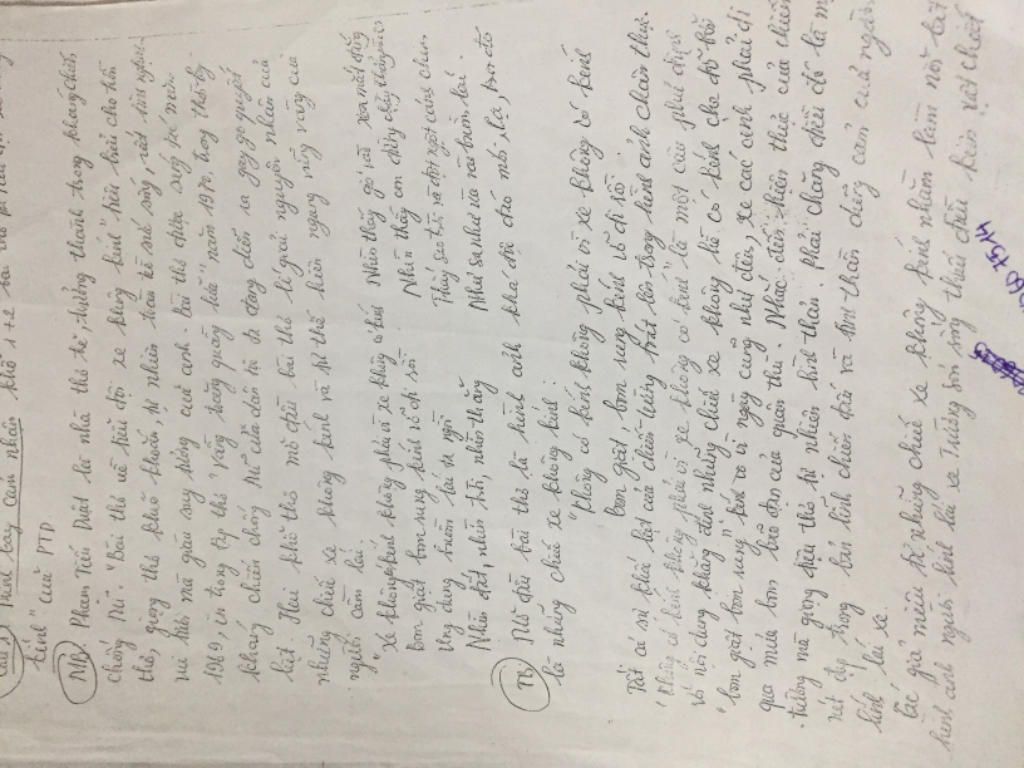 Câu 1: Trình bày cảm nhận khổ 1+2 bài thơ
kính" của PTD.
MB Phạm Tiến Duật là nhà thơ trẻ, trưởng thành trong kháng chiến
chống Mĩ. "Bài thơ về tiểu đội xe không kính" tiêu biểu cho hồn
thơ, giọng thơ khỏe khoắn, tự nhiên, tràn trề sức sống,
vui tươi mà giàu suy tưởng của anh. Bài thơ được
1969, in trong tập thơ "Vầng trăng quầng lửa" năm 1970, trong thời kỳ
kháng chiến chống Mĩ của dân tộc ta đang diễn ra gay go quyết
liệt. Hai khổ thơ mở đầu bài thơ lí giải nguyên nhân của
những chiếc xe không kính và tư thế hiên ngang vững vàng của
người cầm lái.
"Xe không kính không phải vì xe không có kính Nhìn thấy gió vào xoa mắt đắng
Bom giật bom rung kính vỡ đi rồi Nhìn thấy con đường chạy thẳng vào tim
Ung dung buồng lái ta ngồi Thấy sao trời và đột ngột cánh chim
Nhìn đất, nhìn trời, nhìn thẳng Như sa như ùa vào buồng lái.
TB Mở đầu bài thơ là hình ảnh khá độc đáo mới lạ, bao đó
là những chiếc xe không kính:
"Không có kính không phải vì xe không có kính
Bom giật, bom rung kính vỡ đi rồi"
Tất cả sự khốc liệt của chiến trường toát lên trong hình ảnh chân thực.
"Không có kính không phải vì xe không có kính" là một câu phủ định
với nội dung khẳng định những chiếc xe không hề có kính che đỡ bởi
"bom giật bom rung" kính vỡ vì ngày cũng như đêm, xe các anh phải đi
qua mưa bom bão đạn của quân thù. Nhắc đến hiện thực của chiến
tường mà giọng điệu thơ tự nhiên bình thản. Phải chăng điều đó là một
nét đẹp trong bản lĩnh chiến đấu và tinh thần dũng cảm của người
lính lái xe.
Tác giả miêu tả những chiếc xe không kính nhằm làm nổi bật
hình ảnh người lính lái xe Trường Sơn sống thiếu điều kiện vật chất